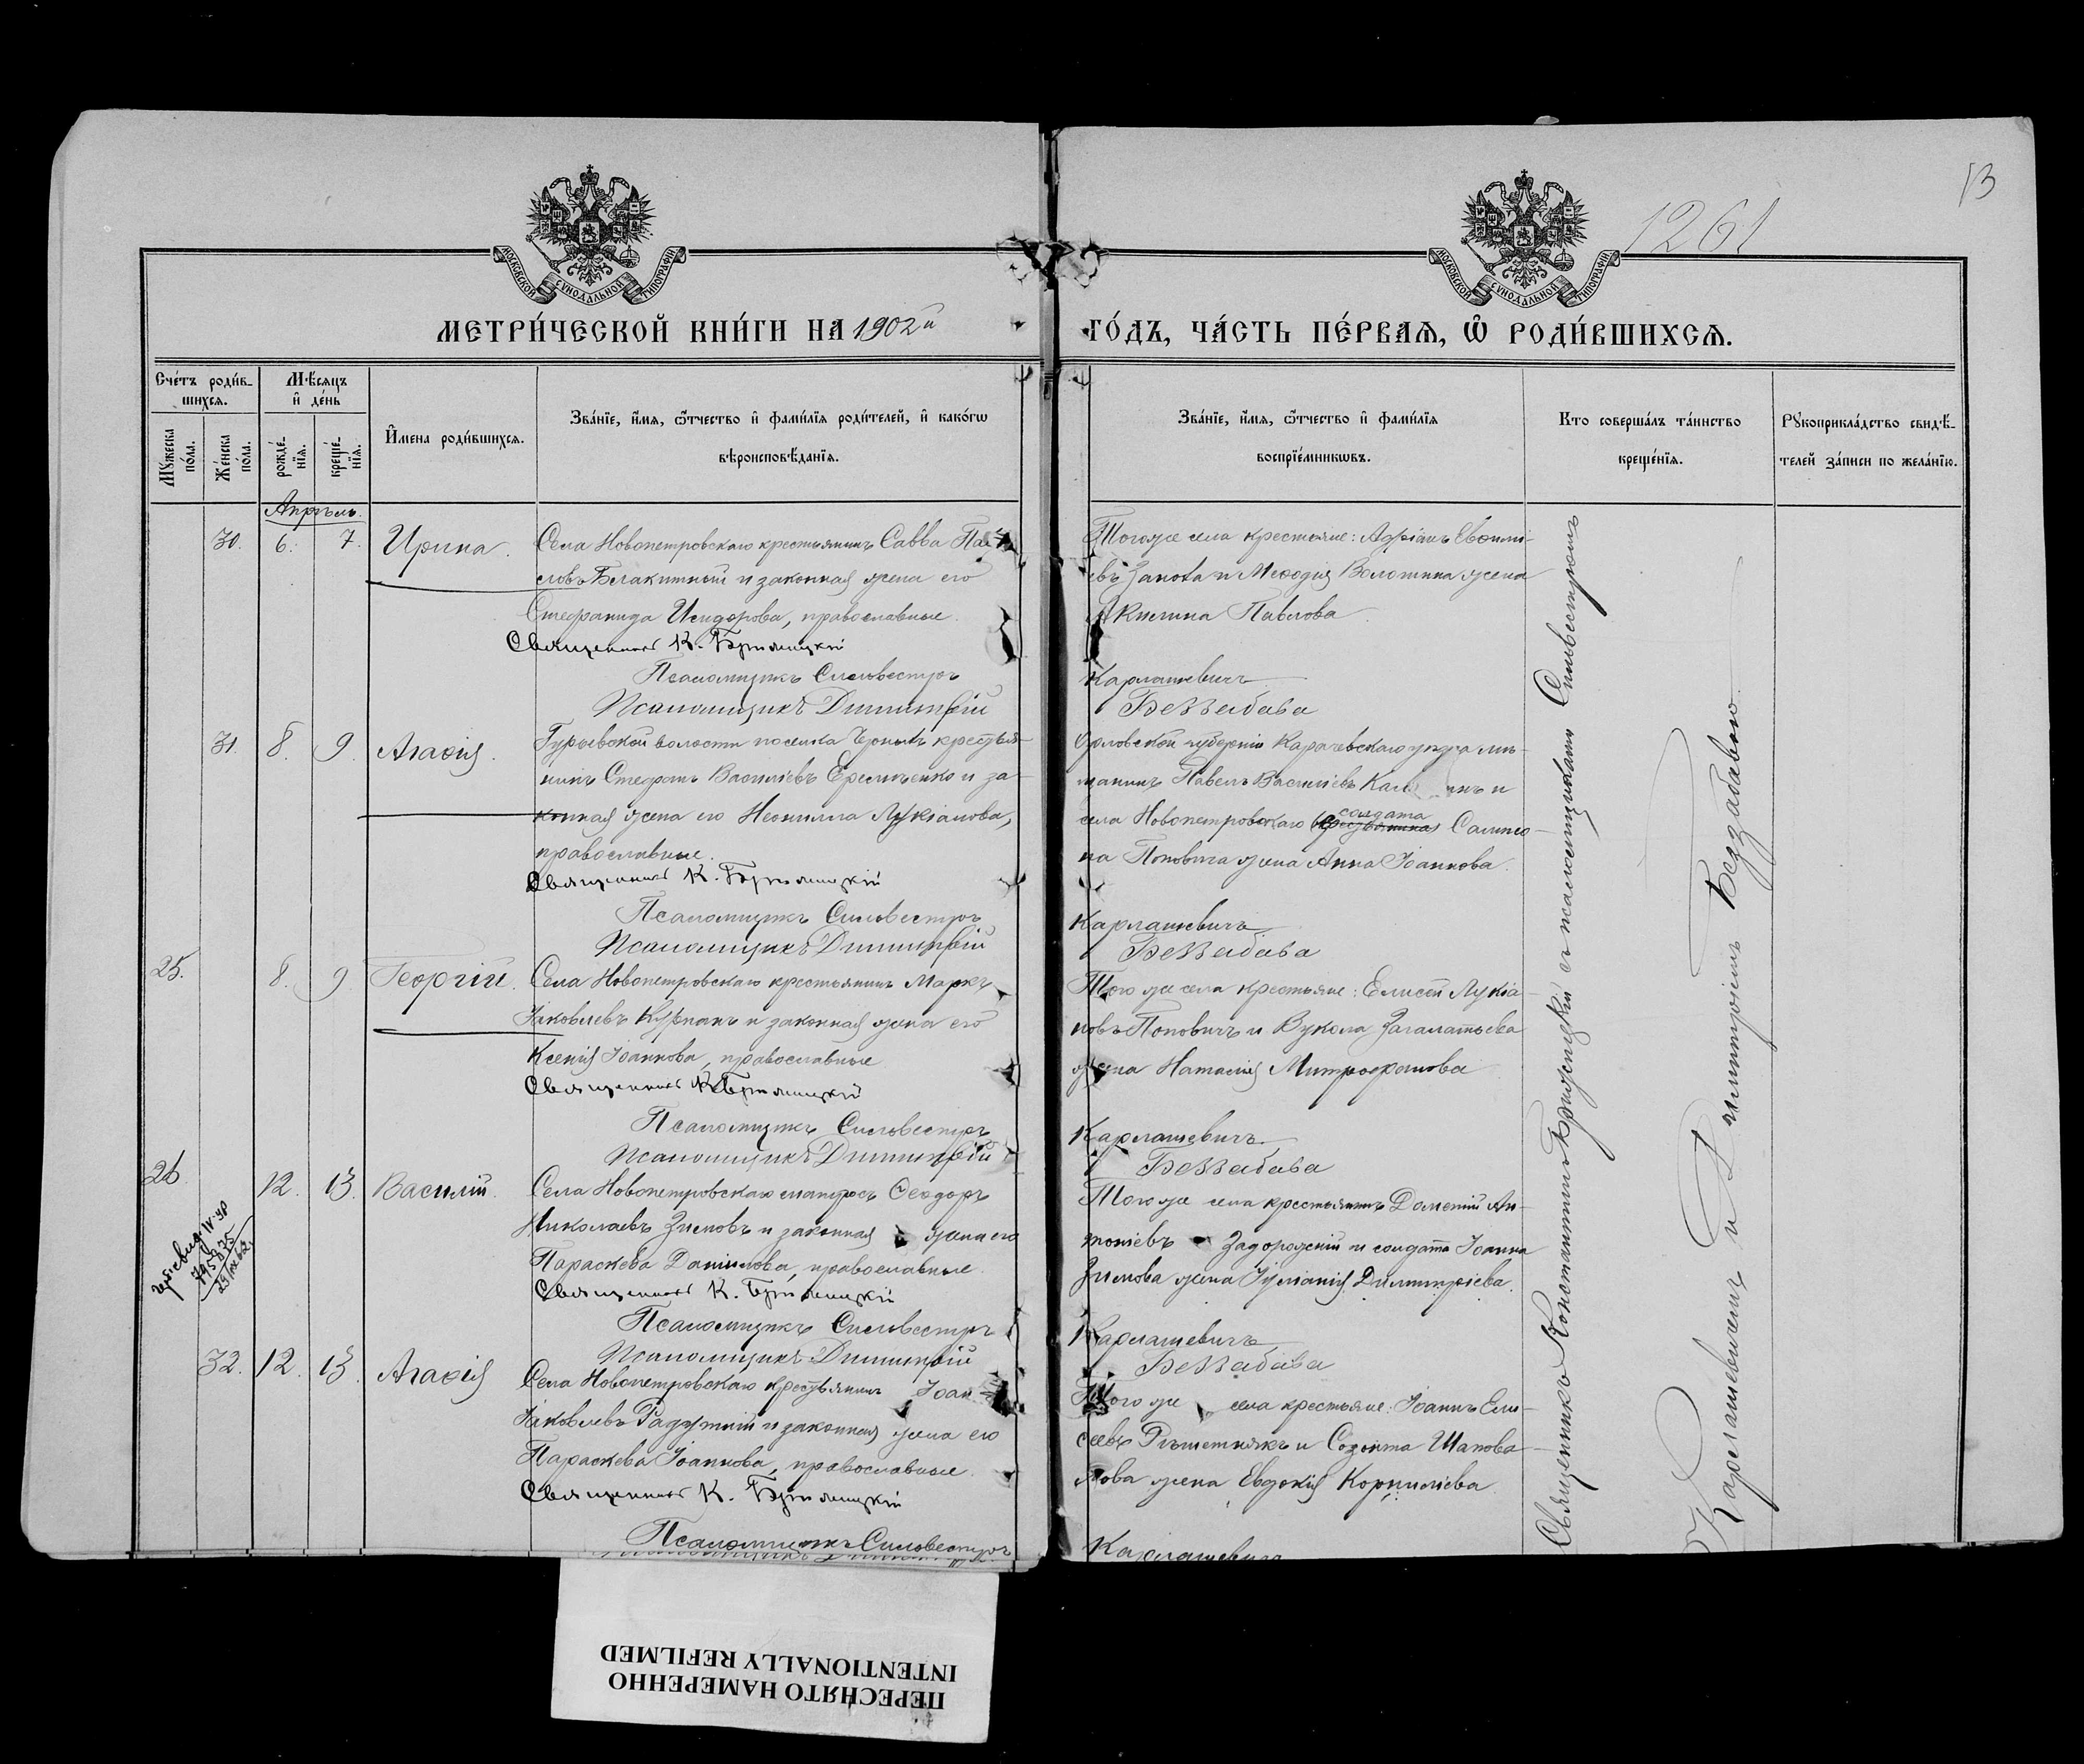 13
1261
МОСКОВСКОЙ СѴНОДАЛЬНОЙ ТИПОГРАФІИ
МОСКОВСКОЙ СѴНОДАЛЬНОЙ ТИПОГРАФІИ
МЕТРИ́ЧЕСКОЙ КНИ́ГИ НА 1902й
ГО́ДЪ, ЧА́СТЬ ПЕ́РВАЯ, Ѡ РОДИ́ВШИХСЯ.
Сче́тъ роди́в-
шихся.
Мѣ́сяцъ
и де́нь
Му́жеска по́ла.
Же́нска по́ла.
рожде́-
нїя.
креще́-
нїя.
И́мена роди́вшихся.
Зва́нїе, и́мя, ѻ́тчество и фами́лїя роди́телей, и како́гѡ
вѣроисповѣ́данїя.
Зва́нїе, и́мя, ѻ́тчество и фами́лїя
воспрїе́мникѡвъ.
Кто соверша́лъ та́инство
креще́нїя.
Рукоприкла́дство свидѣ́-
телей за́писи по жела́нїю.
Апрѣль.
30. 6. 7. Ирина. Села Новопетровскаго крестьянинъ Савва Пав-
ловъ Блакитный и законная жена его
Стефанида Исидорова, православные.
Священникъ К.
Псаломщикъ Сильвестръ
Псаломщикъ Димитрій
Тогоже села крестьяне: Адріанъ Евѳимі-
евъ Запота и Меѳодія Волошина жена
Акилина Павлова.
Карлашевичъ
Беззабава
31. 8. 9. Агаѳія. Гурьевской волости поселка крестья-
нинъ Стефанъ Василіевъ Еремиченко и за-
конная жена его Неонилла Лукіанова,
православные.
Священникъ К.
Псаломщикъ Сильвестръ
Псаломщикъ Димитрій
Орловской губерніи Карачевскаго уѣзда мѣ-
щанинъ Павелъ Василіевъ и
села Новопетровскаго солдата Сампсо-
на Поповича жена Анна Іоаннова.
Карлашевичъ
Беззабава
25. 8. 9. Георгій. Села Новопетровскаго крестьянинъ Маркъ
Іаковлевъ и законная жена его
Ксенія Іоаннова, православные
Священникъ К.
Псаломщикъ Сильвестръ
Псаломщикъ Димитрій
Того же села крестьяне: Елисей Лукіа-
новъ Поповичъ и Вукола жена
Наталія Митрофанова
Карлашевичъ
Беззабава
26. 12. 13. Василій. Села Новопетровскаго матросъ Ѳеодоръ
Николаевъ Зимовъ и законная жена его
Параскева Даніилова, православные.
Священникъ К.
Псаломщикъ Сильвестръ
Псаломщикъ Димитрій
Того же села крестьянинъ Дометій Ан-
тоніевъ Задорожній и солдата Іоанна
Зимова жена Іуліанія Димитріева.
Карлашевичъ
Беззабава
32. 12. 13. Агаѳія Села Новопетровскаго крестьянинъ Іоан
Іаковлевъ Радутный и законная жена его
Параскева Іоаннова, православные.
Священникъ К.
Псаломщикъ Сильвестръ
Того же села крестьяне: Іоаннъ Ели-
сеевъ Рѣшетнякъ и Созонта Шапова-
лова жена Евдокія Корниліева.
Карлашевичъ
Священникъ Константинъ съ псаломщиками Сильвестромъ
Карлашевичемъ и Димитріемъ Беззабавою.
ПЕРЕСНЯТО НАМЕРЕННО
INTENTIONALLY REFILMED